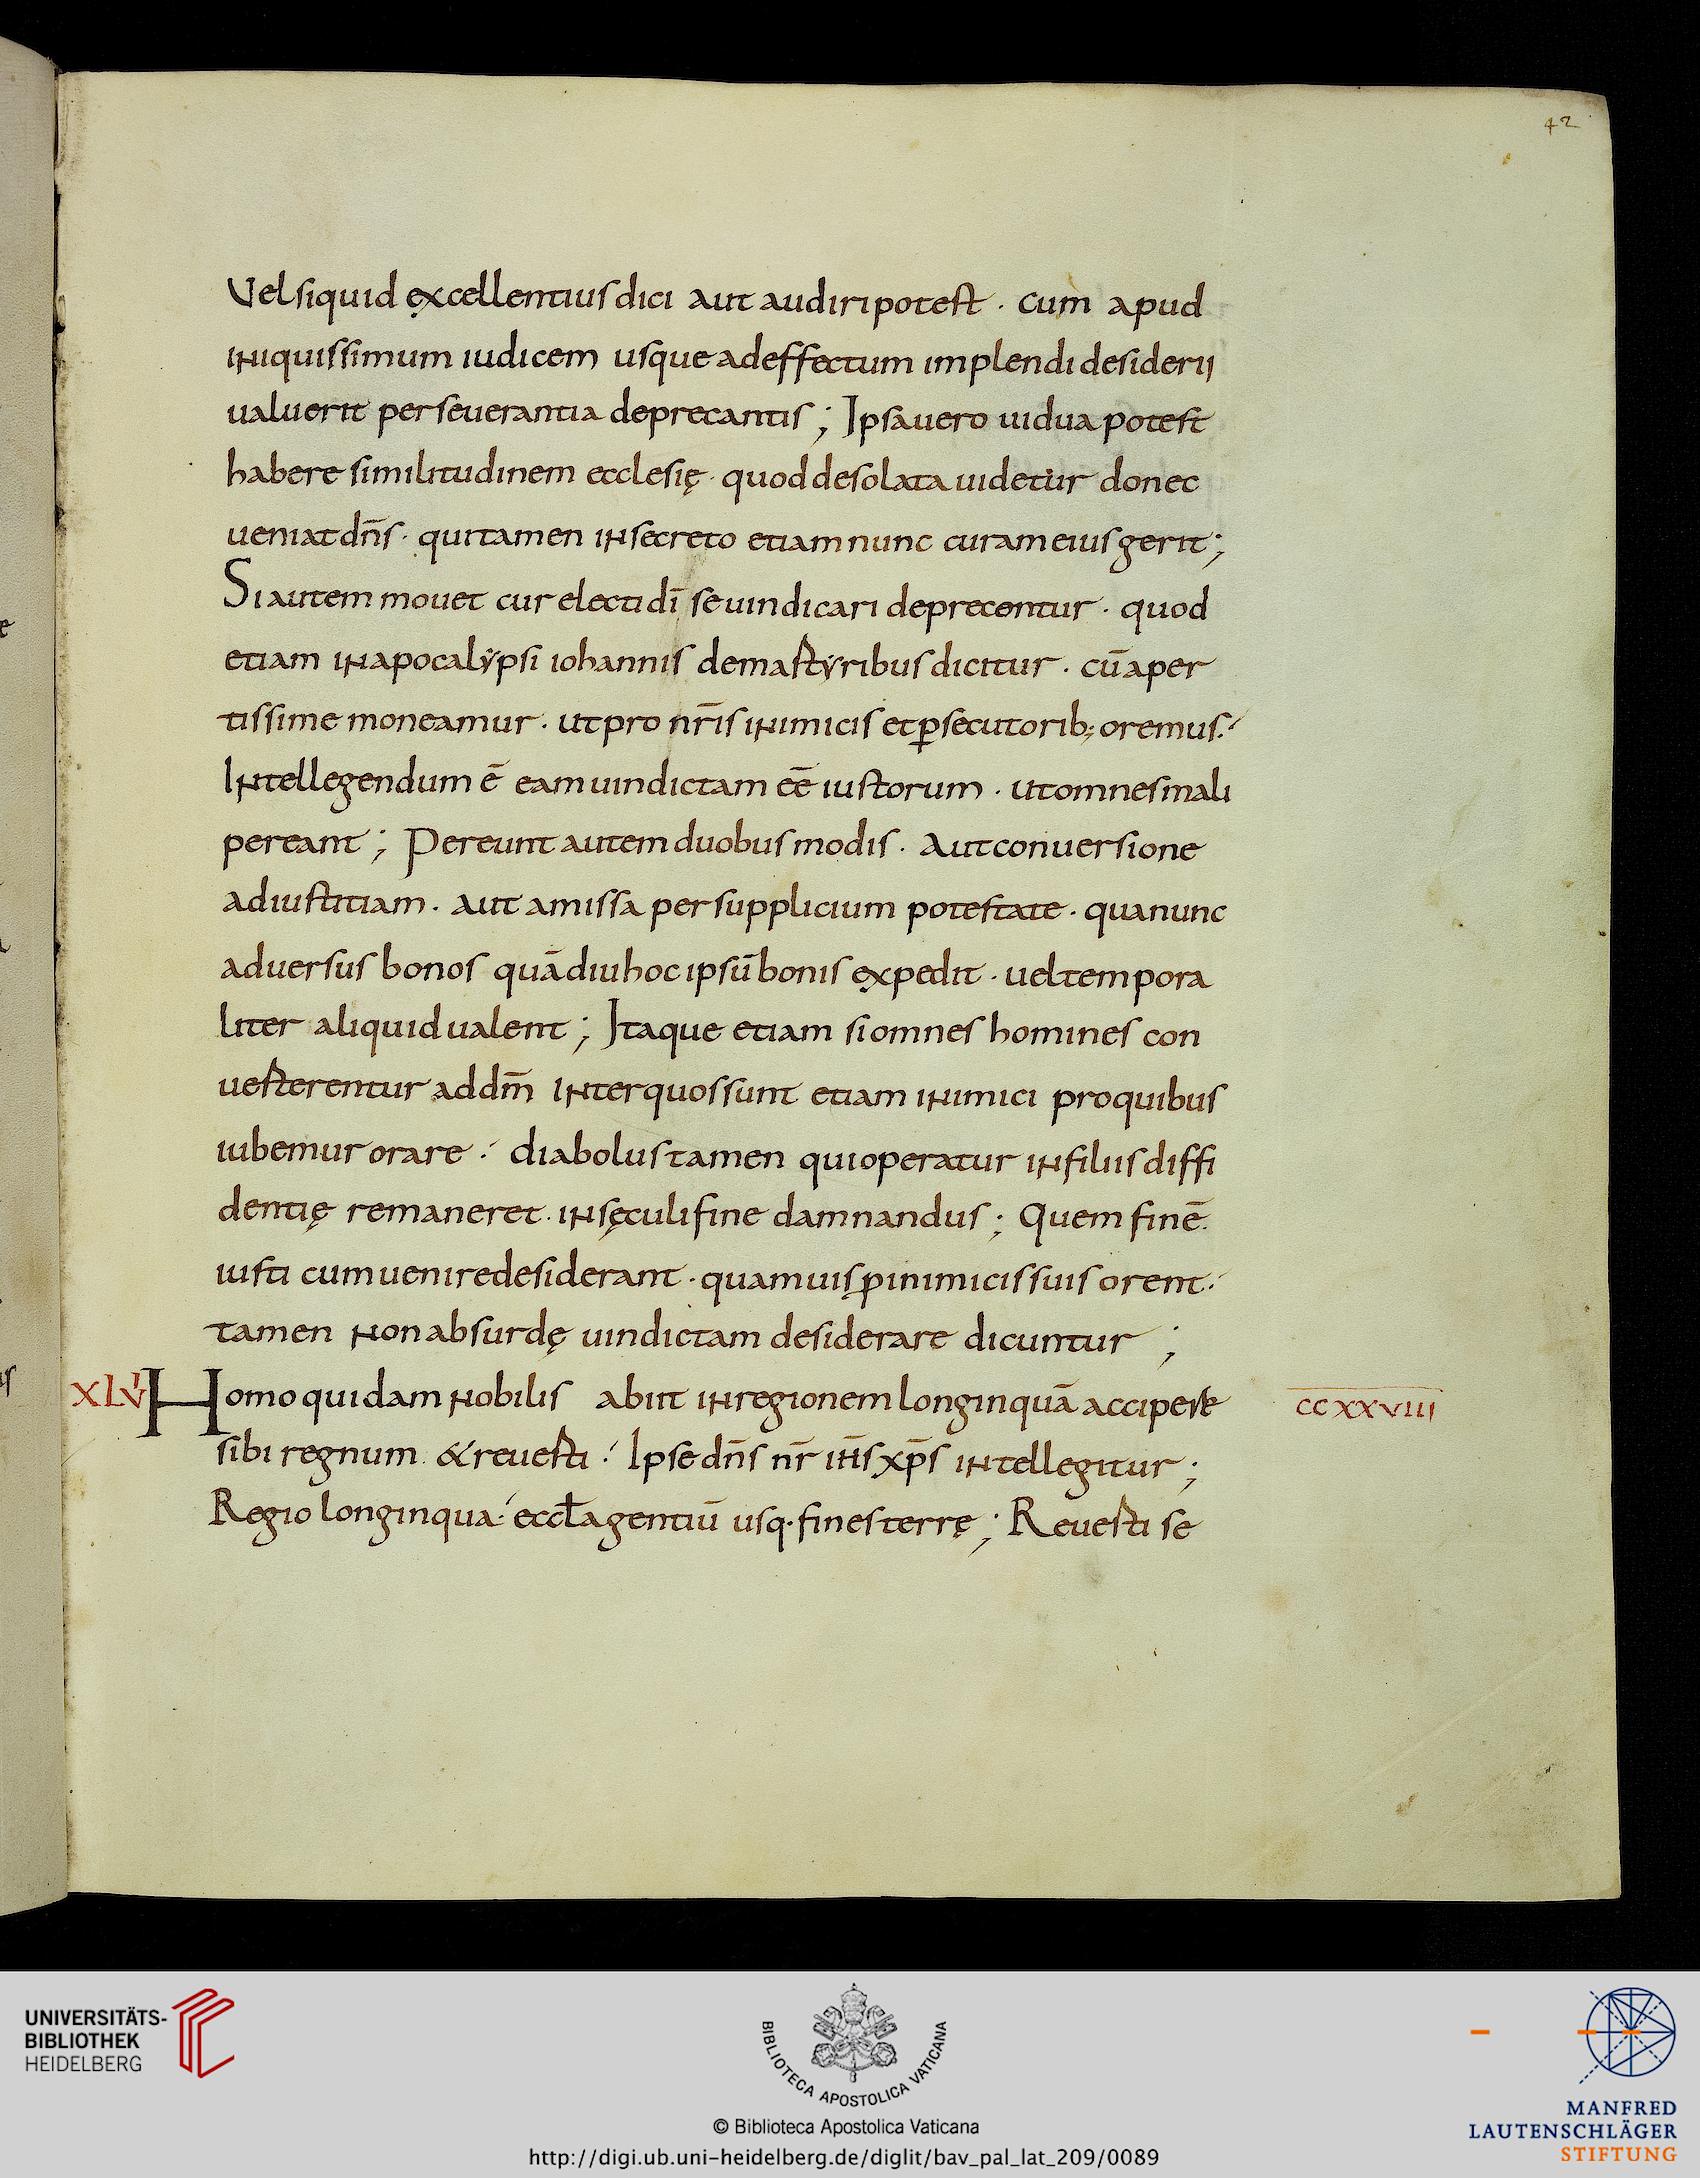 42
Vel siquid excellentius dici aut audiri potest · cum apud
iniquissimum iudicem usque ad effectum implendi desiderii
ualuerit perseuerantia deprecantis ; Ipsa uero uidua potest
habere similitudinem ecclesię · quod desolata uidetur donec
ueniat dn̄s · qui tamen in secreto etiam nunc curam eius gerit ;
Si autem mouet cur electi dī se uindicari deprecentur · quod
etiam in apocalẏpsi iohannis de martẏribus dicitur · cū aper
tissime moneamur · ut pro nr̄is inimicis et ꝑsecutorib; oremus ·
Intellegendum ē eam uindictam eē iustorum · ut omnes mali
pereant ; Pereunt autem duobus modis · Aut conuersione
ad iustitiam · aut amissa per supplicium potestate · qua nunc
aduersus bonos quādiu hoc ipsū bonis expedit · uel tempora
liter aliquid ualent ; Itaque etiam si omnes homines con
uerterentur ad dm̄ inter quos sunt etiam inimici pro quibus
iubemur orare · diabolus tamen qui operatur in filiis diffi
dentię remaneret · in sęculi fine damnandus ; Quem finē
iusti cum uenire desiderant · quamuis ꝓ inimicis suis orent ·
tamen non absurdę uindictam desiderare dicuntur ;
XLVI Homo quidam nobilis abiit in regionem longinquā accipere CCXXVIII
sibi regnum & reuerti · Ipse dn̄s nr̄ ih̄s xp̄s intellegitur ;
Regio longinqua · eccła gentiū usq· fines terrę ; Reuerti se
UNIVERSITÄTS-
BIBLIOTHEK
HEIDELBERG
BIBLIOTECA APOSTOLICA VATICANA
© Biblioteca Apostolica Vaticana
http://digi.ub.uni-heidelberg.de/diglit/bav_pal_lat_209/0089
MANFRED
LAUTENSCHLÄGER
STIFTUNG